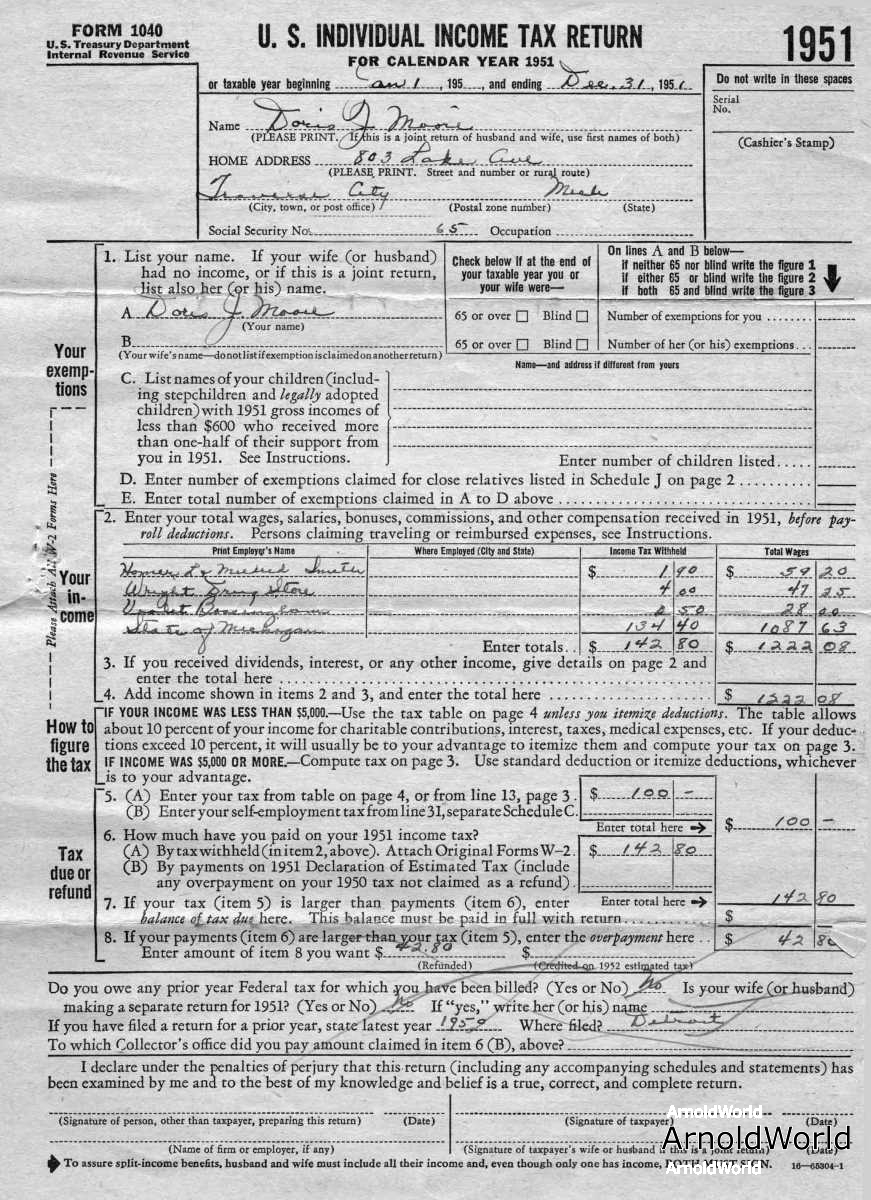 FORM 1040
U. S. Treasury Department
Internal Revenue Service
U. S. INDIVIDUAL INCOME TAX RETURN
FOR CALENDAR YEAR 1951
1951
or taxable year beginning Jan 1, 195 , and ending Dec. 31, 1951
Do not write in these spaces
Serial
No.
(Cashier's Stamp)
Name Doris J. Moore
(PLEASE PRINT. If this is a joint return of husband and wife, use first names of both)
HOME ADDRESS 803 Lake Ave
(PLEASE PRINT. Street and number or rural route)
Traverse City Mich
(City, town, or post office) (Postal zone number) (State)
Social Security No. 65 Occupation
Your exemptions
1. List your name. If your wife (or husband)
had no income, or if this is a joint return,
list also her (or his) name.
Check below if at the end of
your taxable year you or
your wife were—
On lines A and B below—
If neither 65 nor blind write the figure 1
If either 65 or blind write the figure 2
If both 65 and blind write the figure 3
A Doris J. Moore
(Your name)
65 or over Blind Number of exemptions for you
B
65 or over Blind Number of her (or his) exemptions
(Your wife's name—do not list if exemption is claimed on another return)
Name—and address if different from yours
C. List names of your children (includ-
ing stepchildren and legally adopted
children) with 1951 gross incomes of
less than $600 who received more
than one-half of their support from
you in 1951. See Instructions.
Enter number of children listed
D. Enter number of exemptions claimed for close relatives listed in Schedule J on page 2
E. Enter total number of exemptions claimed in A to D above
Please Attach All W-2 Forms Here
Your income
2. Enter your total wages, salaries, bonuses, commissions, and other compensation received in 1951, before pay-
roll deductions. Persons claiming traveling or reimbursed expenses, see Instructions.
Print Employer's Name Where Employed (City and State) Income Tax Withheld Total Wages
Smith $ 1 90 $ 59 20
Wright Drug Store 4 00 47 25
50 28 00
State of Michigan 134 40 1087 63
Enter totals $ 142 80 $ 1222 08
3. If you received dividends, interest, or any other income, give details on page 2 and
enter the total here
4. Add income shown in items 2 and 3, and enter the total here $ 1222 08
How to figure the tax
IF YOUR INCOME WAS LESS THAN $5,000.—Use the tax table on page 4 unless you itemize deductions. The table allows
about 10 percent of your income for charitable contributions, interest, taxes, medical expenses, etc. If your deduc-
tions exceed 10 percent, it will usually be to your advantage to itemize them and compute your tax on page 3.
IF INCOME WAS $5,000 OR MORE.—Compute tax on page 3. Use standard deduction or itemize deductions, whichever
is to your advantage.
Tax due or refund
5. (A) Enter your tax from table on page 4, or from line 13, page 3. $ 100 –
(B) Enter your self-employment tax from line 31, separate Schedule C.
Enter total here $ 100 –
6. How much have you paid on your 1951 income tax?
(A) By tax withheld (in item 2, above). Attach Original Forms W–2. $ 142 80
(B) By payments on 1951 Declaration of Estimated Tax (include
any overpayment on your 1950 tax not claimed as a refund).
Enter total here 142 80
7. If your tax (item 5) is larger than payments (item 6), enter
balance of tax due here. This balance must be paid in full with return $
8. If your payments (item 6) are larger than your tax (item 5), enter the overpayment here $ 42 80
Enter amount of item 8 you want $ 42.80 $
(Refunded) (Credited on 1952 estimated tax)
Do you owe any prior year Federal tax for which you have been billed? (Yes or No) No. Is your wife (or husband)
making a separate return for 1951? (Yes or No) No If "yes," write her (or his) name
If you have filed a return for a prior year, state latest year 1950 Where filed? Detroit
To which Collector's office did you pay amount claimed in item 6 (B), above?
I declare under the penalties of perjury that this return (including any accompanying schedules and statements) has
been examined by me and to the best of my knowledge and belief is a true, correct, and complete return.
(Signature of person, other than taxpayer, preparing this return) (Date) (Signature of taxpayer) (Date)
(Name of firm or employer, if any) (Signature of taxpayer's wife or husband if this is a joint return) (Date)
To assure split-income benefits, husband and wife must include all their income and, even though only one has income, BOTH MUST SIGN. 16—65304-1
ArnoldWorld
ArnoldWorld
ArnoldWorld